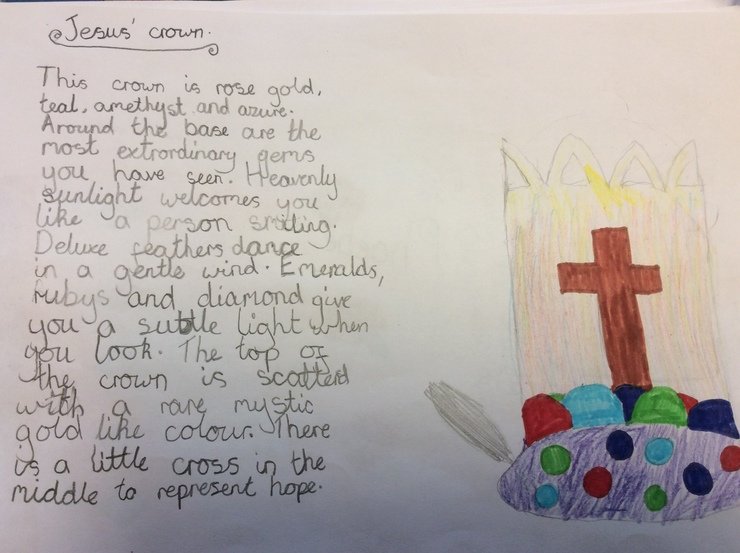 Jesus' crown.
This crown is rose gold,
teal, amethyst and azure.
Around the base are the
most extrordinary gems
you have seen. Heavenly
sunlight welcomes you
like a person smiling.
Deluxe feathers dance
in a gentle wind. Emeralds,
rubys and diamond give
you a subtle light when
you look. The top of
the crown is scatterd
with a rare mystic
gold like colour. There
is a little cross in the
middle to represent hope.